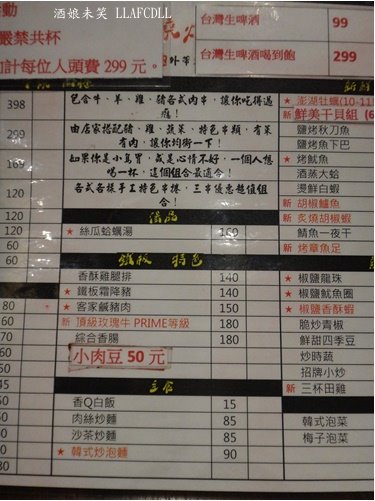 酒娘未笑 LLAFCDLL
動
嚴禁共杯
計每位人頭費 299 元
台灣生啤酒 99
台灣生啤酒喝到飽 299
398 包含牛、羊、雞、豬各式肉串，讓你吃得過癮！
299 由店家搭配豬、雞、蔬菜、特色串類，有菜有肉，讓你均衡一下！
169 如果你是小鳥胃，或是心情不好，一個人想喝一杯，這個組合最適合！
120 各式各樣手工特色串捲，三串優惠超值組合！
120 湯品
120 ★ 絲瓜蛤蠣湯 160
60 鐵板 特色
香酥雞腿排 140
★ 鐵板霜降豬 140
80 ★ 客家鹹豬肉 150
新 頂級玫瑰牛 PRIME等級 180
綜合香腸 180
小肉豆 50 元
主食
香Q白飯 15
肉絲炒麵 85
沙茶炒麵 85
★ 韓式炒泡麵 90
★ 澎湖牡蠣(10-11
新 鮮美干貝組 (6
鹽烤秋刀魚
鹽烤魚下巴
★ 烤魷魚
酒蒸大蛤
燙鮮白蝦
新 胡椒鱸魚
新 炙燒胡椒蝦
鯖魚一夜干
新 烤章魚足
★ 椒鹽龍珠
★ 椒鹽魷魚圈
★ 椒鹽香酥蝦
脆炒青椒
鮮甜四季豆
炒時蔬
招牌小炒
新 三杯田雞
韓式泡菜
梅子泡菜